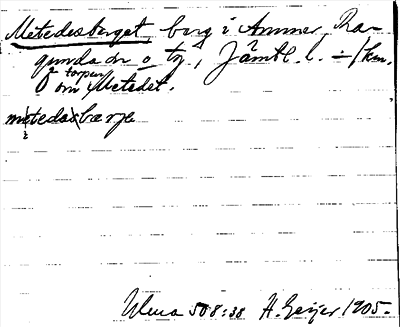 Metedesberget, berg i Ammer, Ra-
gunda sn o tg, Jämtl. l. ÷ 1 km.
Ö om torpen Metedet.
metedasbærje
Ulma 508:38 H. Geijer 1905.